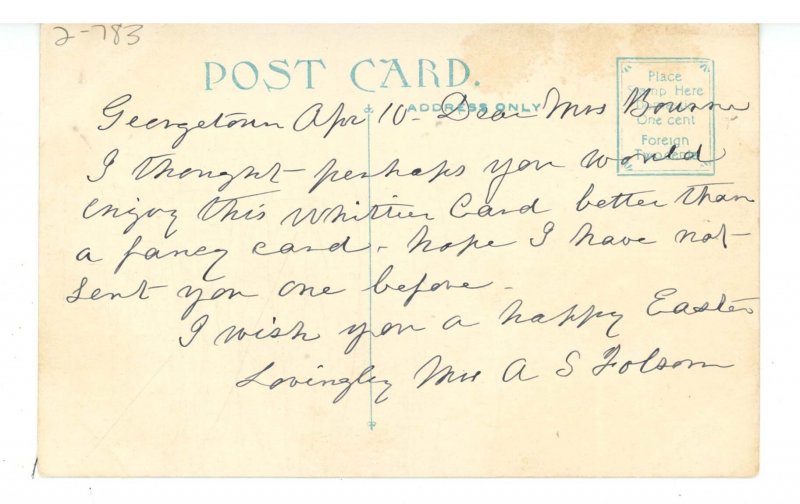 2-783
POST CARD.
ADDRESS ONLY
Place
Stamp Here
One cent
Foreign
Two cents
Georgetown Apr 10 - Dear Mrs Bourne
I thought perhaps you would
enjoy this Whittier Card better than
a fancy card - hope I have not
sent you one before -
I wish you a happy Easter
Lovingley Mrs A S Folsom